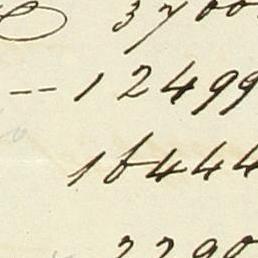 3700
-- 12499
16444
2290